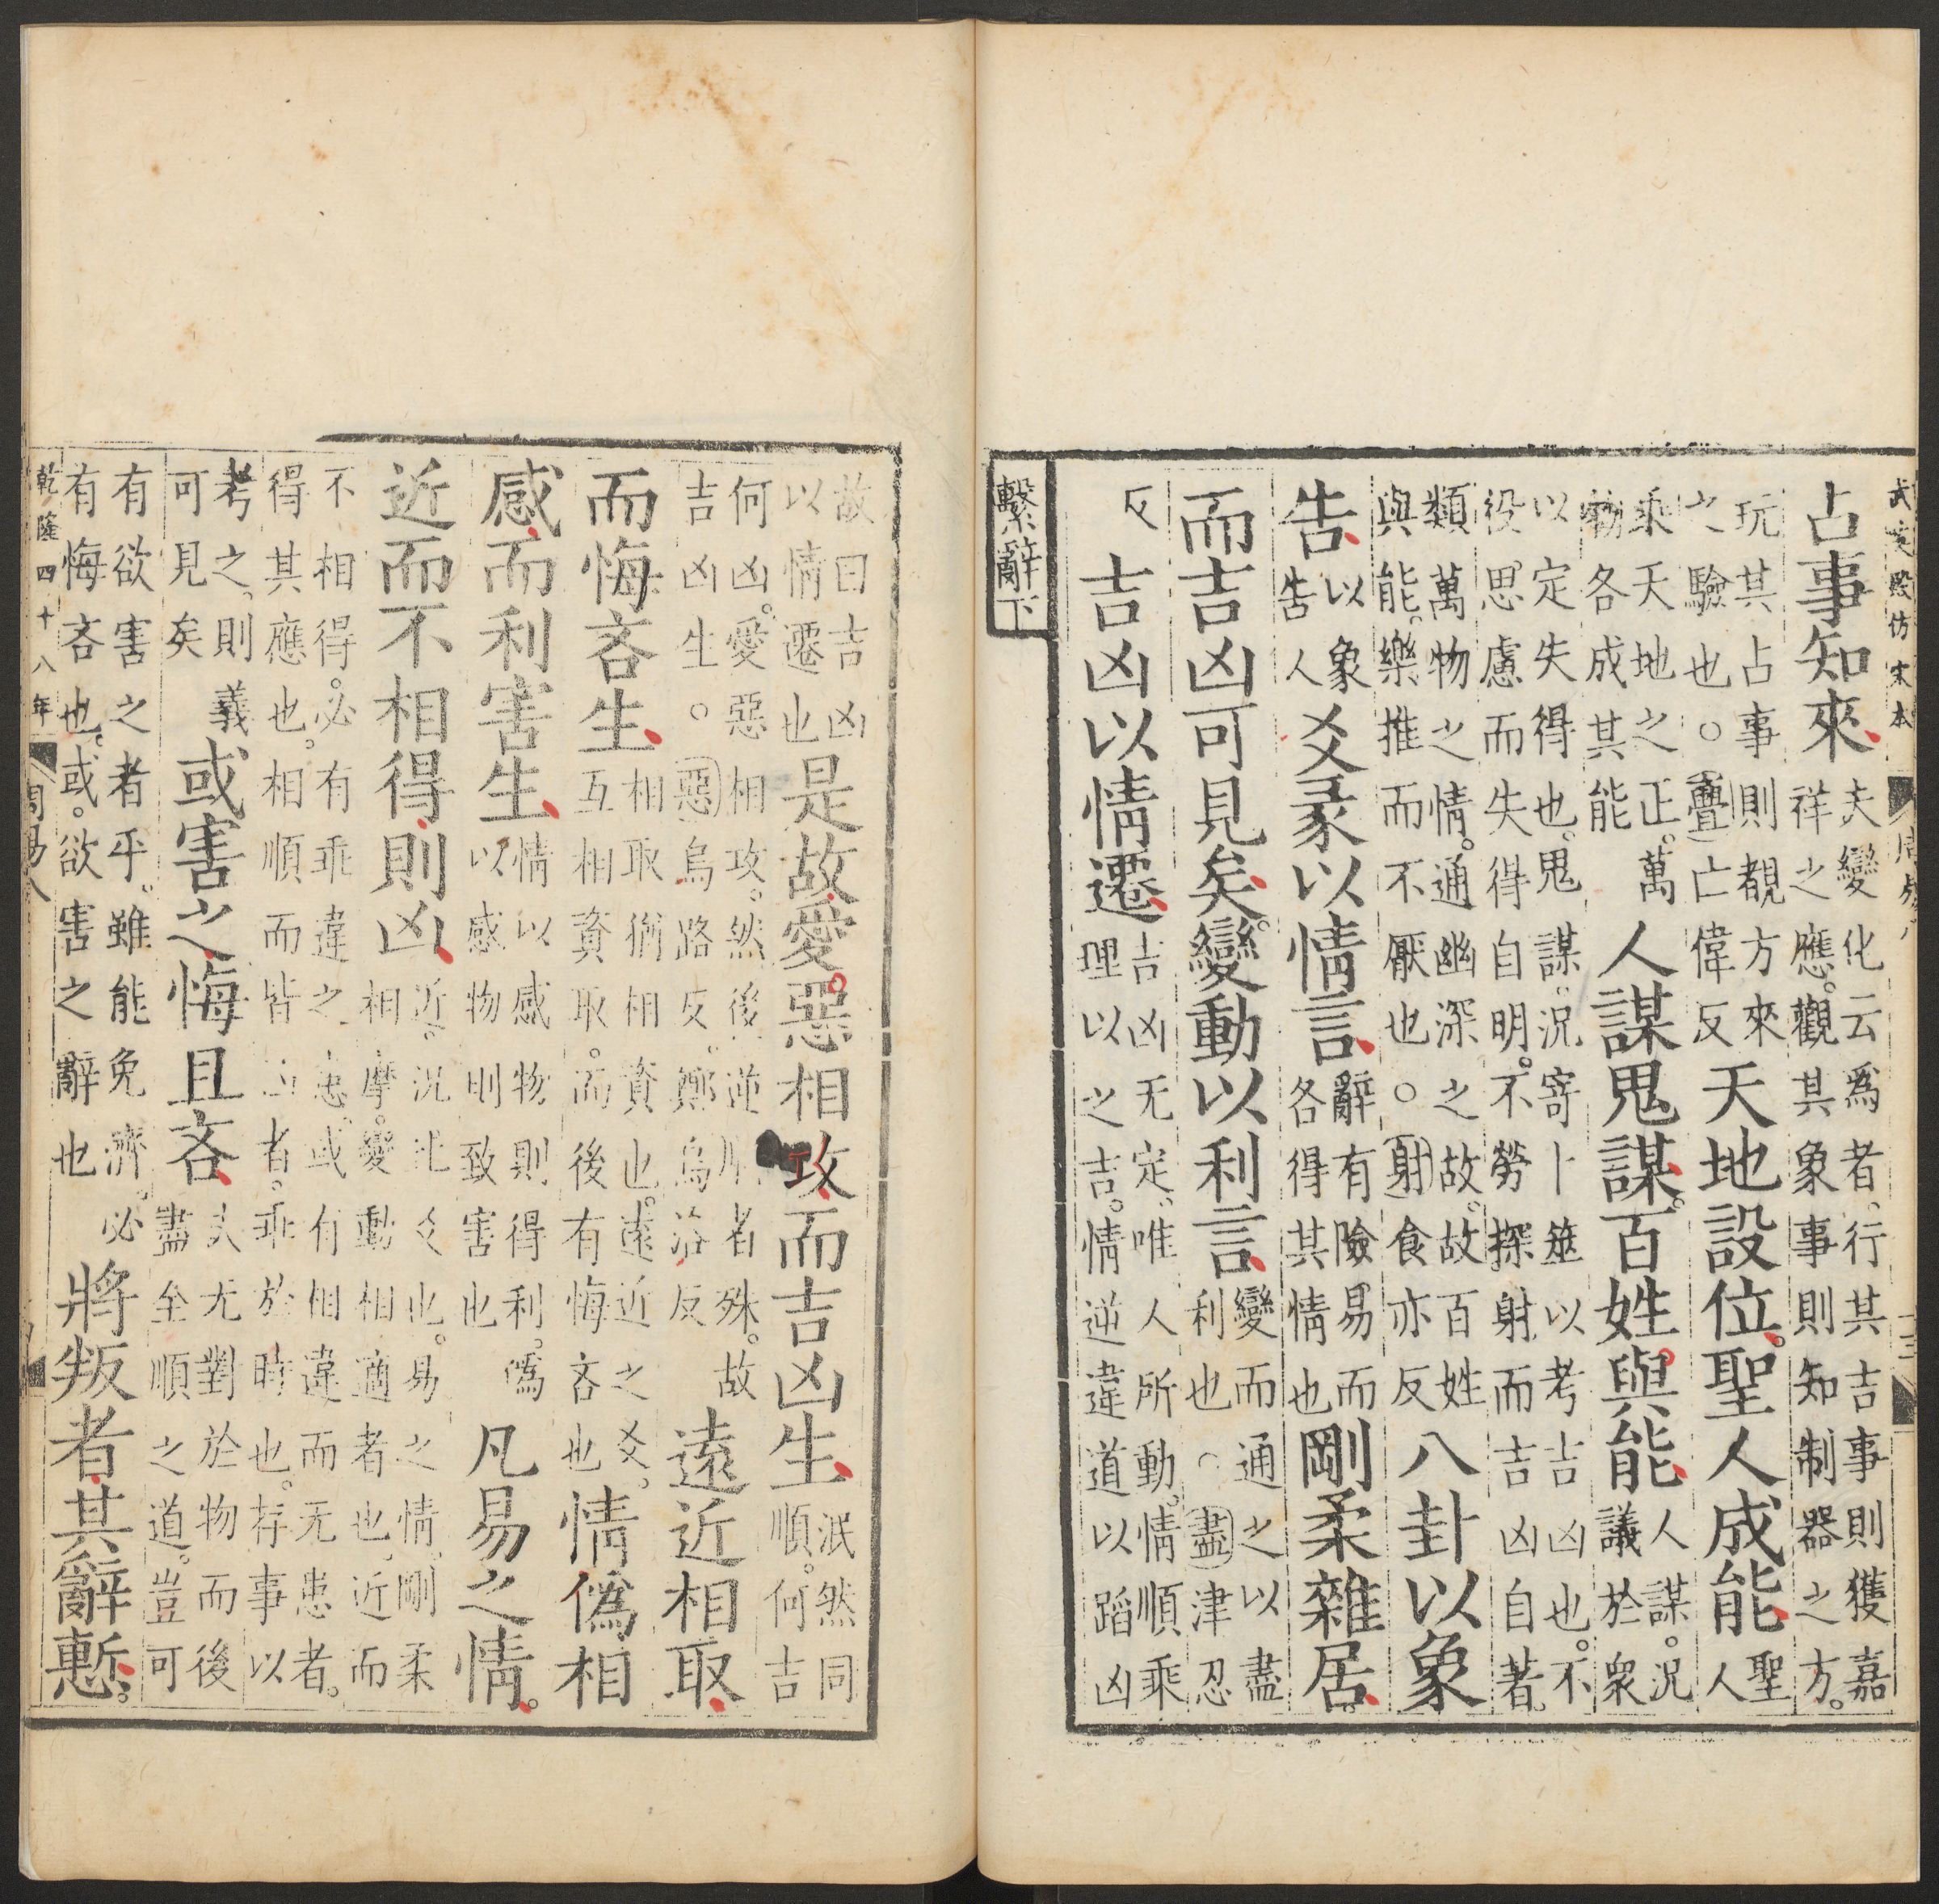 武英殿仿宋本
周易八
占事知來夫變化云爲者行其吉事則獲嘉祥之應觀其象事則知制器之方
玩其占事則覩方來之驗也○亹亡偉反天地設位聖人成能聖人
乘天地之正萬物各成其能人謀鬼謀百姓與能人謀況議於衆
以定失得也鬼謀況寄卜筮以考吉凶也不役思慮而失得自明不勞探射而吉凶自著
類萬物之情通幽深之故故百姓與能樂推而不厭也○射食亦反八卦以象
告以象告人爻彖以情言辭有險易而各得其情也剛柔雜居
而吉凶可見矣變動以利言變而通之以盡利也○盡津忍
反吉凶以情遷吉凶无定唯人所動情順乘理以之吉情逆違道以蹈凶
繫辭下
故曰吉凶以情遷也是故愛惡相攻而吉凶生泯然同順何吉
何凶愛惡相攻然後逆順者殊故吉凶生○惡烏路反鄭烏洛反遠近相取
而悔吝生相取猶相資也遠近之爻互相資取而後有悔吝也情僞相
感而利害生情以感物則得利僞以感物則致害也凡易之情
近而不相得則凶近況比爻也易之情剛柔相摩變動相適者也近而
不相得必有乖違之患或有相違而无患者得其應也相順而皆凶者乖於時也存事以
考之則義可見矣或害之悔且吝夫无對於物而後盡全順之道豈可
有欲害之者乎雖能免濟必有悔吝也或欲害之辭也將叛者其辭慙
乾隆四十八年
周易八